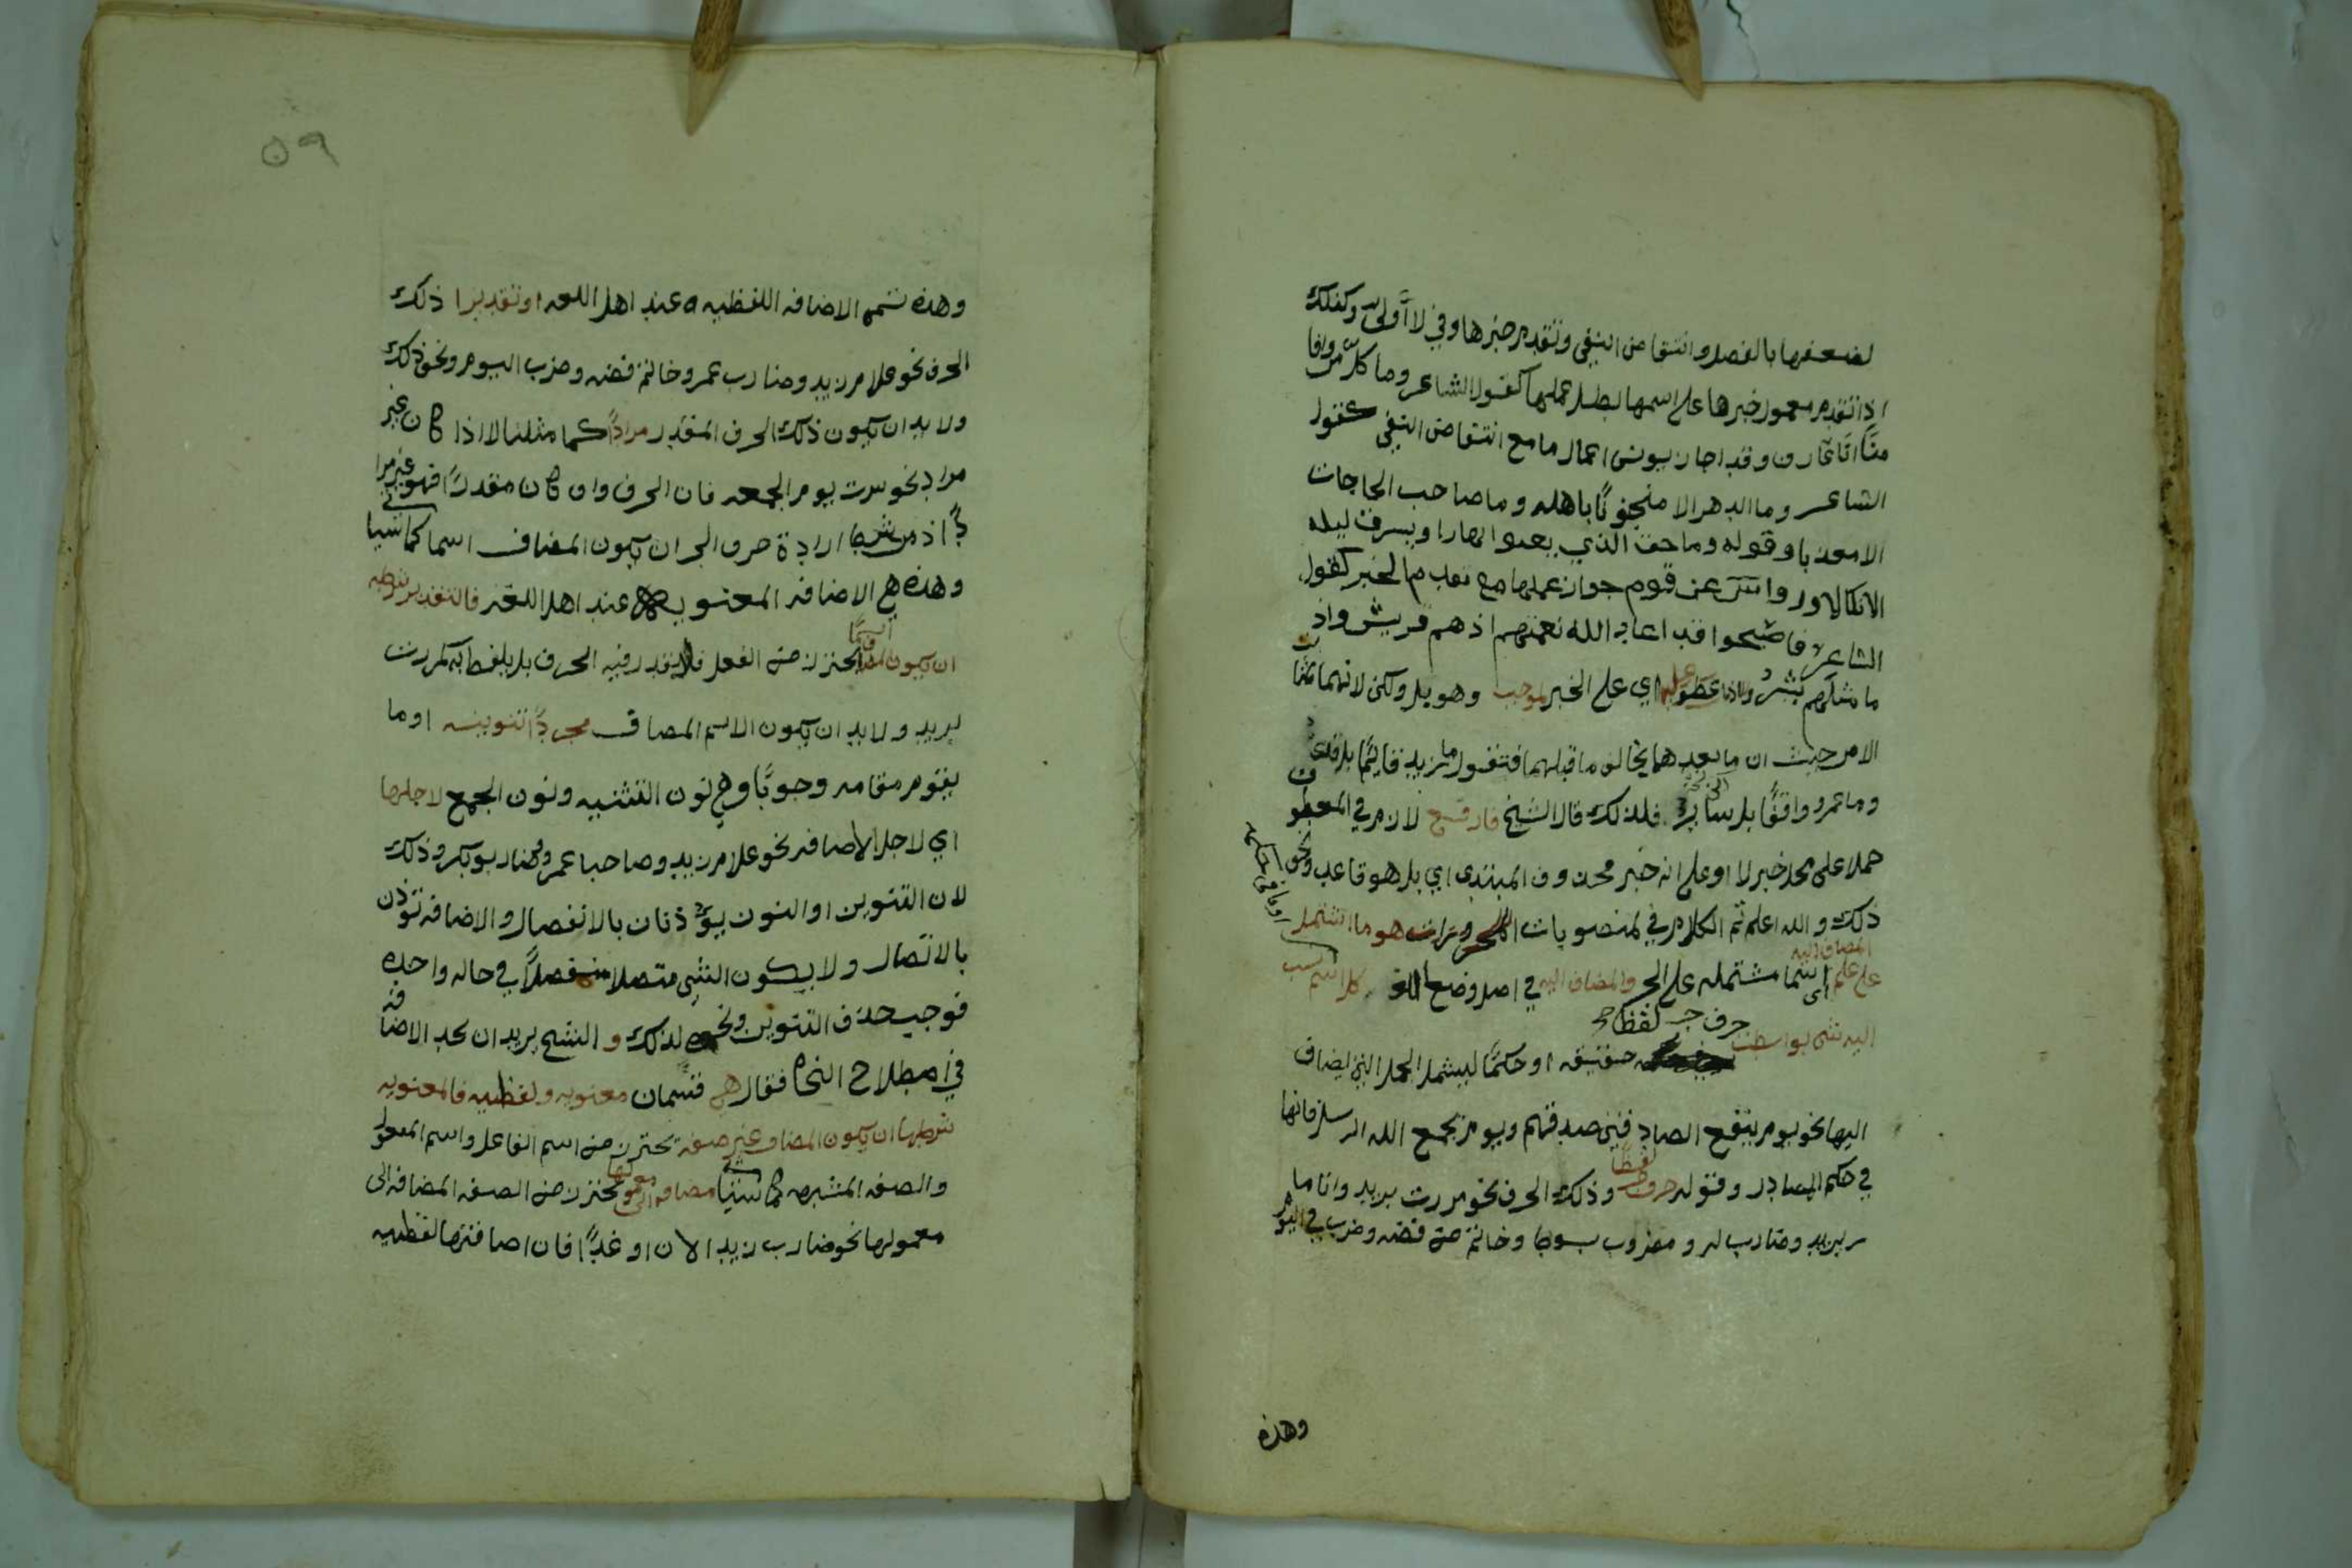 لضعفها بالفصل وانتقاض النفي وتقدم خبرها وفي لا أولى وكذلك
اذا تقدم معمول خبرها على اسمها بطل عملها كقول الشاعر وما كل من وافا
منًا انا عارف وقد اجاز يونس اعمال ما مع انتقاض النفي كقول
الشاعر وما الدهر الا منجنونًا باهله وما صاحب الحاجات
الا معذبا وقوله وما حق الذي يعثوا نهارا ويسرق ليله
الا نكالا ور عن قوم جواز عملها مع تقدم الخبر كقول
الشاعر فاصبحوا قد اعاد الله نعمتهم اذ هم قريش واذ
ما مثلهم بشر واذا عطف عليه اي على الخبر بموجب وهو بل ولكن لانهما
الامر حيث ان ما بعدهما يخالف ما قبلهما فتقول ما زيد قائمًا بل قاعد
وما عمرو واقفًا بل سائر فلذلك قال الشيخ فارفع لازم في المعطوف
حملا على محل خبر لا او على انه خبر محذوف المبتدى اي بل هو قاعد ونحو
ذلك والله اعلم تم الكلام في المنصوبات المجرورات هو ما اشتمل
على علم المضاف اليه اي اسما مشتمله على الجر والمضاف اليه في اصل وضع كل اسم نسب
اليه شي بواسطه حرف جر لفظا حقيقه او حكمًا ليشمل الجمل التي يضاف
اليها نحو يوم ينفع الصادقين صدقهم ويوم يجمع الله الرسل فانها
في حكم المصادر وقوله حرف جر لفظًا وذلك الحرف نحو مررت بزيد وانا ما
ر بزيد وضارب لر ومضروب بسوط وخاتم من فضه وضرب في اليوم
وهذه
٥٩
وهذه تسمى الاضافه اللفظيه عند اهل اللغه او تقديرا ذلك
الحرف نحو غلام زيد وضارب عمر وخاتم فضه وضرب اليوم ونحو ذلك
ولا بد ان يكون ذلك الحرف المقدر مرادًا كما مثلنا لا اذا كان غير
مراد نحو سرت يوم الجمعه فان الحرف وان كان مقدرًا فهو غير مرا
دٍ اذ من شرط ارادة حرف الجر ان يكون المضاف اسما كما سيا
وهذه هي الاضافه المعنويه عند اهل اللغه فالتقدير شرطه
ان يكون المضاف اسمًا يحترز من الفعل فلا يقدر فيه الحرف بل يلفظ به كمررت
بزيد ولا بد ان يكون الاسم المضاف مجردًا تنوينه او ما
يقوم مقامه وجوبًا وهي نون التثنيه ونون الجمع لاجلها
اي لاجل الاضافه نحو غلام زيد وصاحبا عمرو وضاربو بكر وذلك
لان التنوين او النون يؤذنان بالانفصال والاضافه تؤذن
بالاتصال ولا يكون الشي متصلا منفصلاً في حاله واحده
فوجب حذف التنوين ونحوه لذلك و الشيخ يريد ان يحد الاضافه
في اصطلاح النحاه فقال هي قسمان معنويه ولفظيه فالمعنويه
شرطها ان يكون المضاف غير صفه يحترز من اسم الفاعل واسم المفعول
والصفه المشبهه كما سيأتي مضافه الى معمولها يحترز من الصفه المضافه الى
معمولها نحو ضارب زيد الان او غدًا فان اضافتها لفظيه